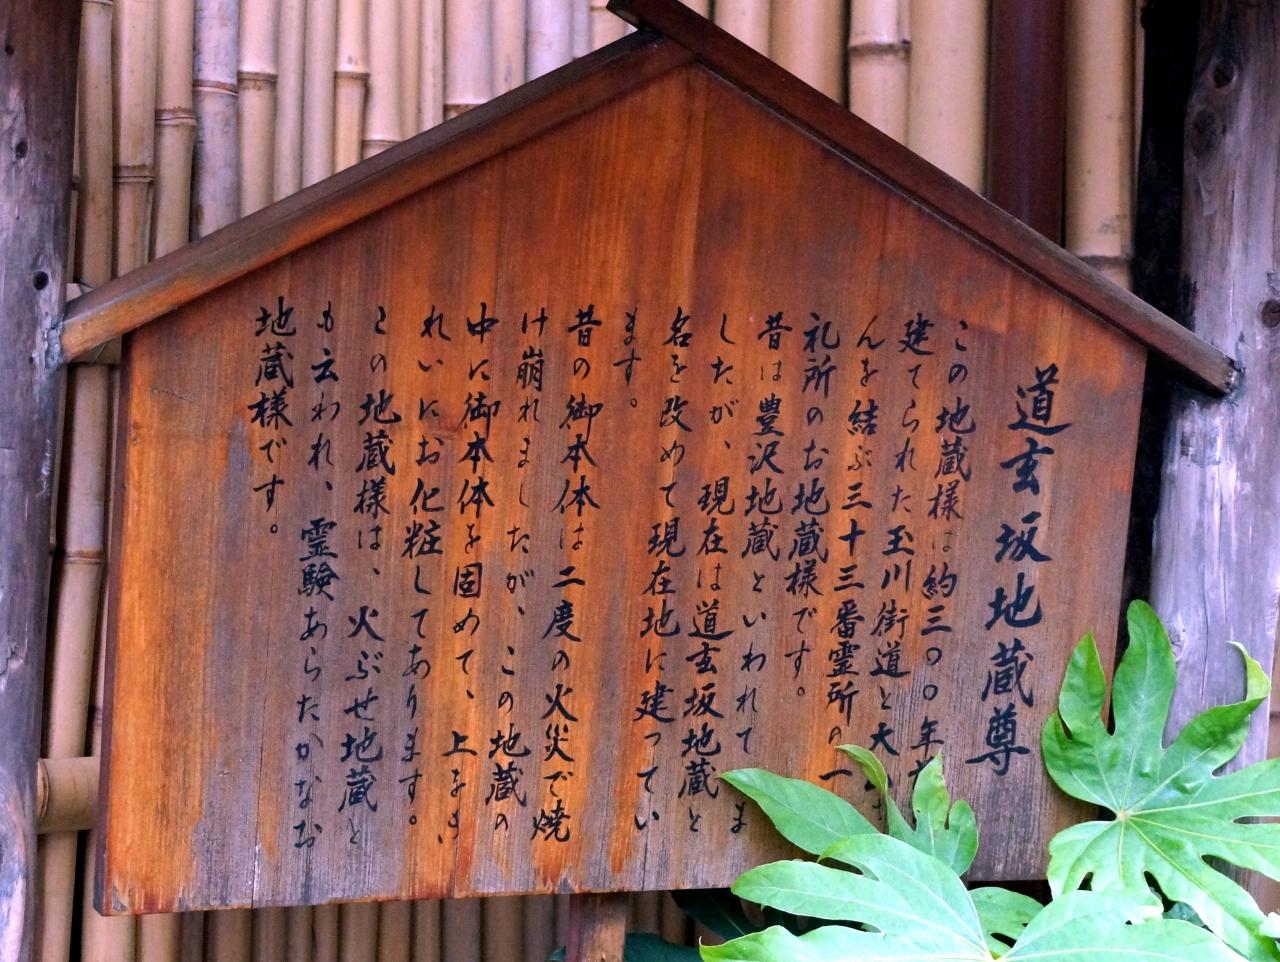 道玄坂地蔵尊
この地蔵様は約三〇〇年
建てられた玉川街道と大
んを結ぶ三十三番霊所の一
礼所のお地蔵様です。
昔は豊沢地蔵といわれてま
したが、現在は道玄坂地蔵と
名を改めて現在地に建ってい
ます。
昔の御本体は二度の火災で焼
け崩れましたが、この地蔵の
中に御本体を固めて、上をき
れいにお化粧してあります。
この地蔵様は、火ぶせ地蔵と
も云われ、霊験あらたかなお
地蔵様です。